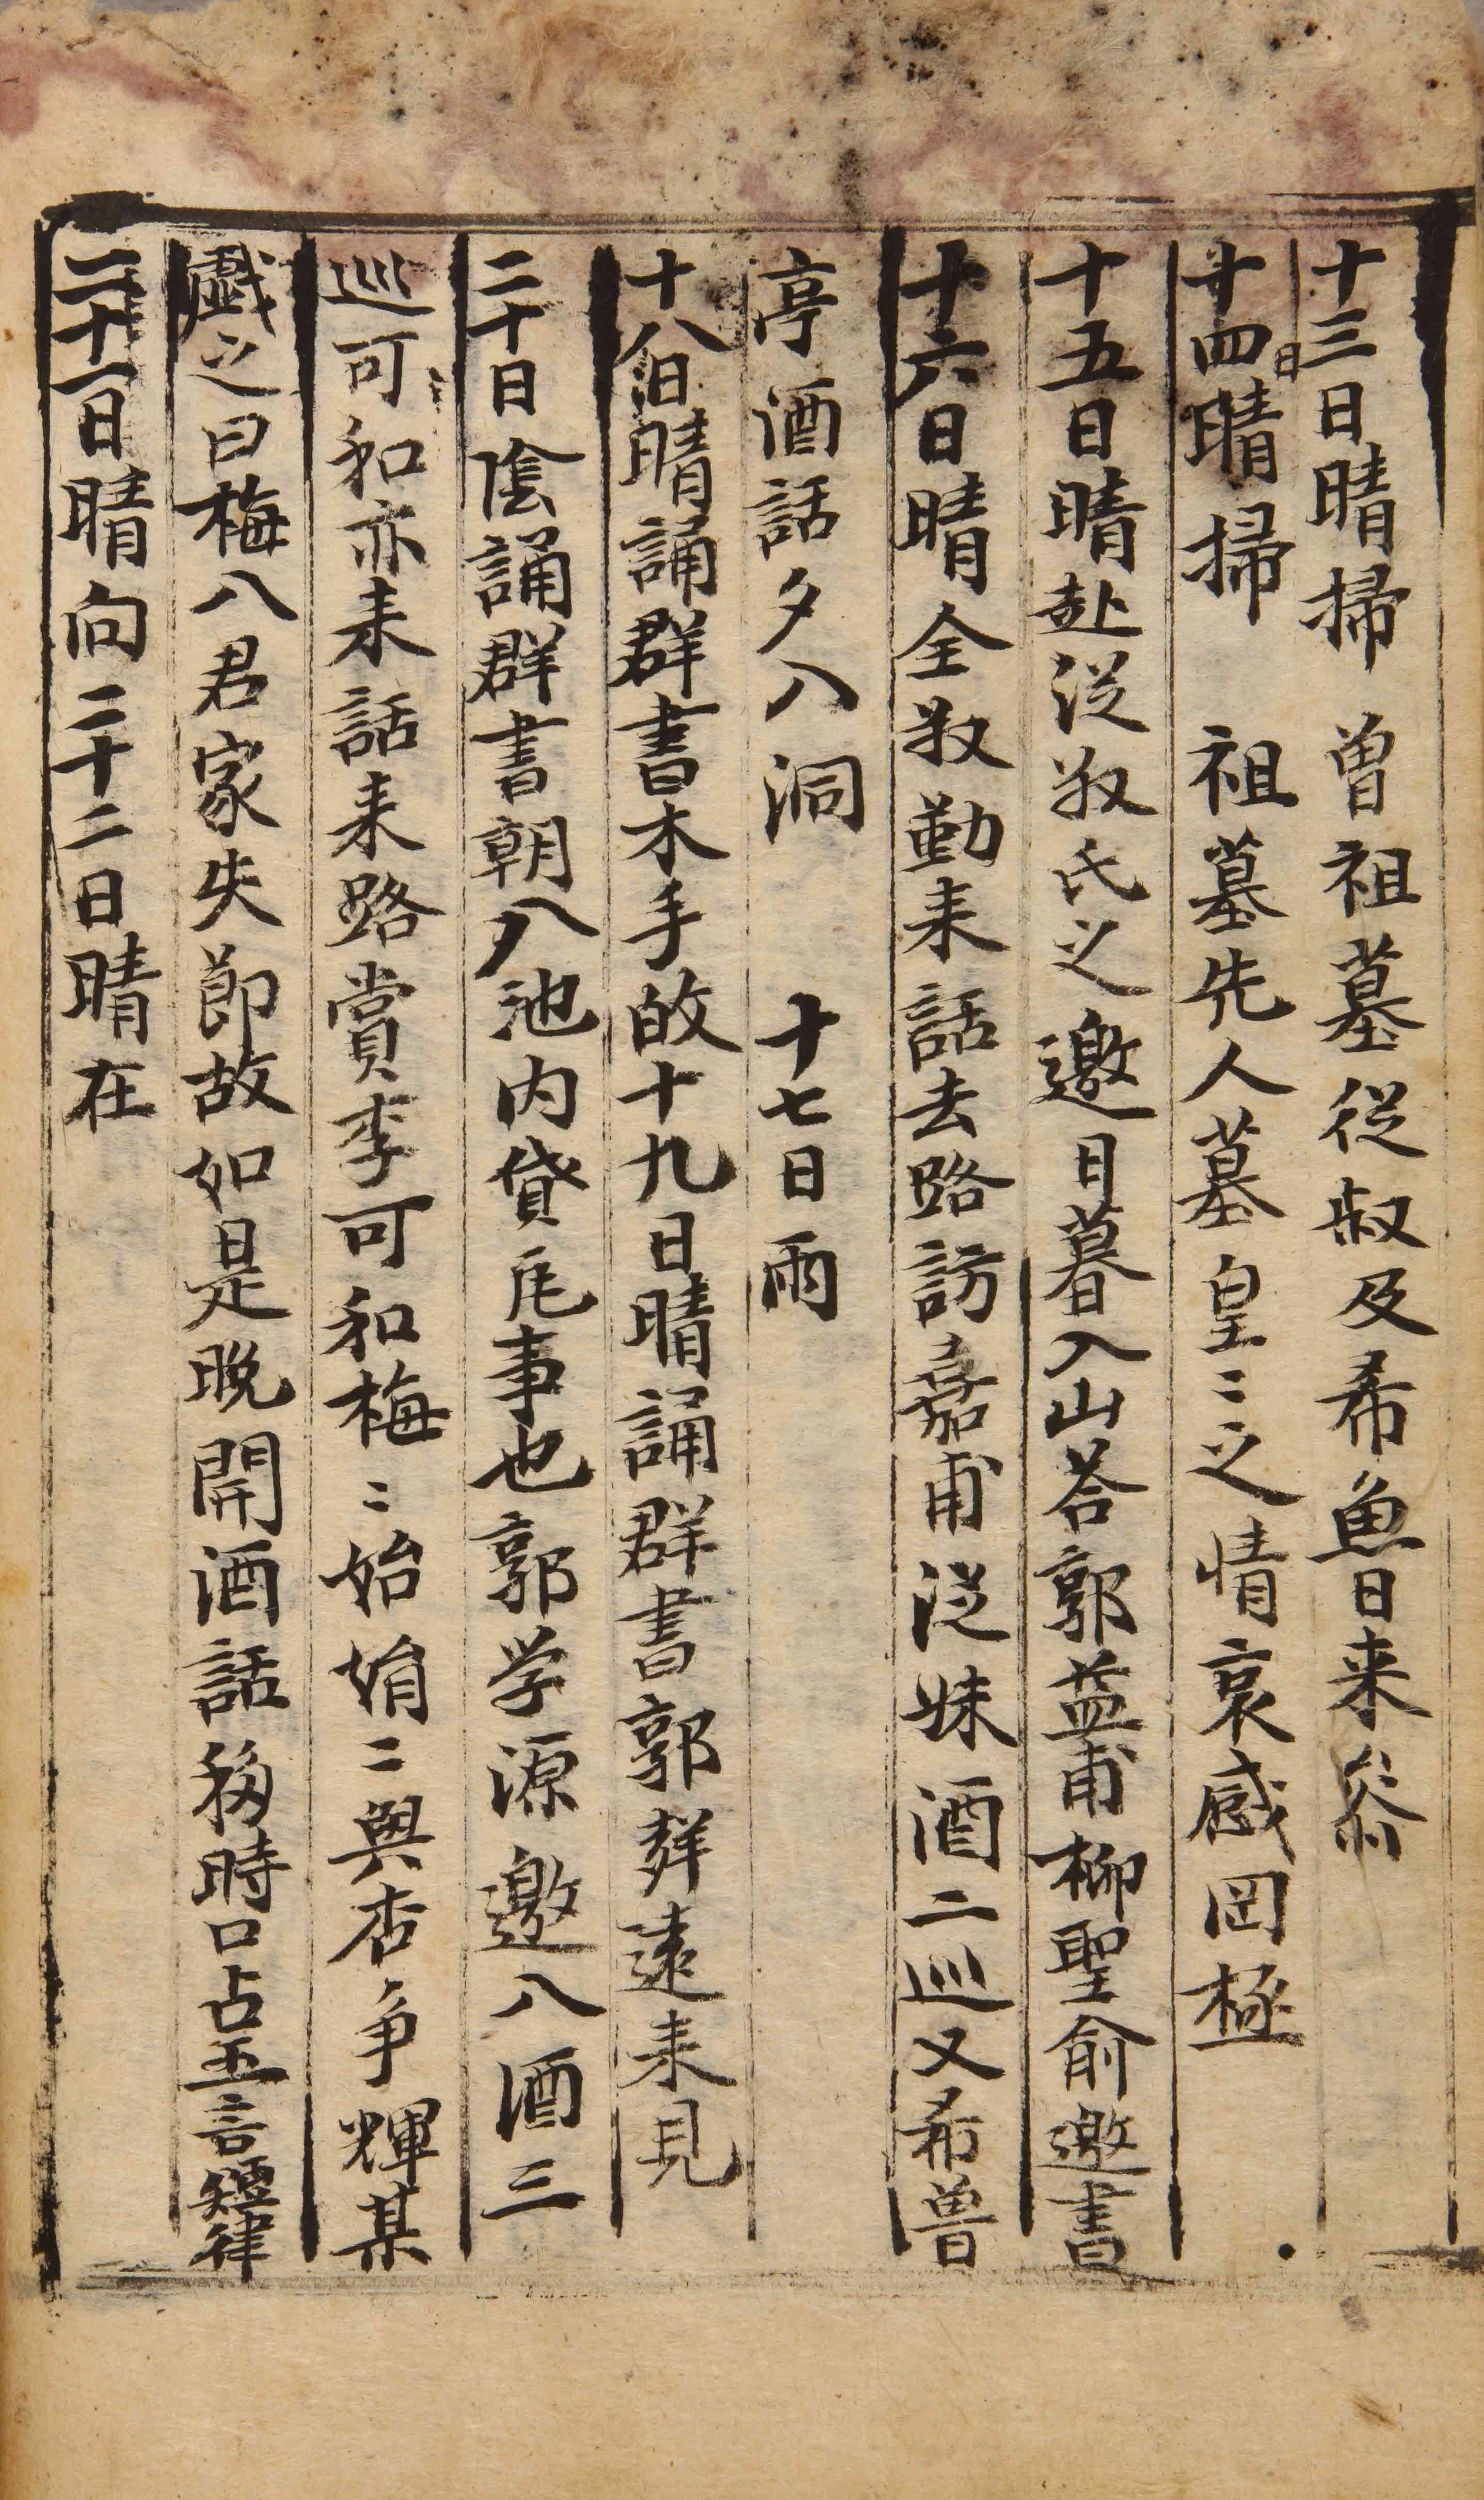 十三日晴掃 曾祖墓從叔及希魚日来叅
十四日晴掃 祖墓先人墓皇〻之情哀感罔極
十五日晴赴从叔氏之邀日暮入山荅郭益甫柳聖俞邀書
十六日晴全叔勤来話去路訪嘉甫从妹酒二巡又希曽
亭酒話夕入洞 十七日雨
十八日晴誦群書木手始十九日晴誦群書郭群遠来見
二十日陰誦群書朝入池内貸瓦事也郭学源邀入酒三
巡可和亦来話来路賞李可和梅〻始娟〻與杏争輝某
戱之曰梅入君家失節故如是晩開酒話移時口占五言短律
二十一日晴向二十二日晴在